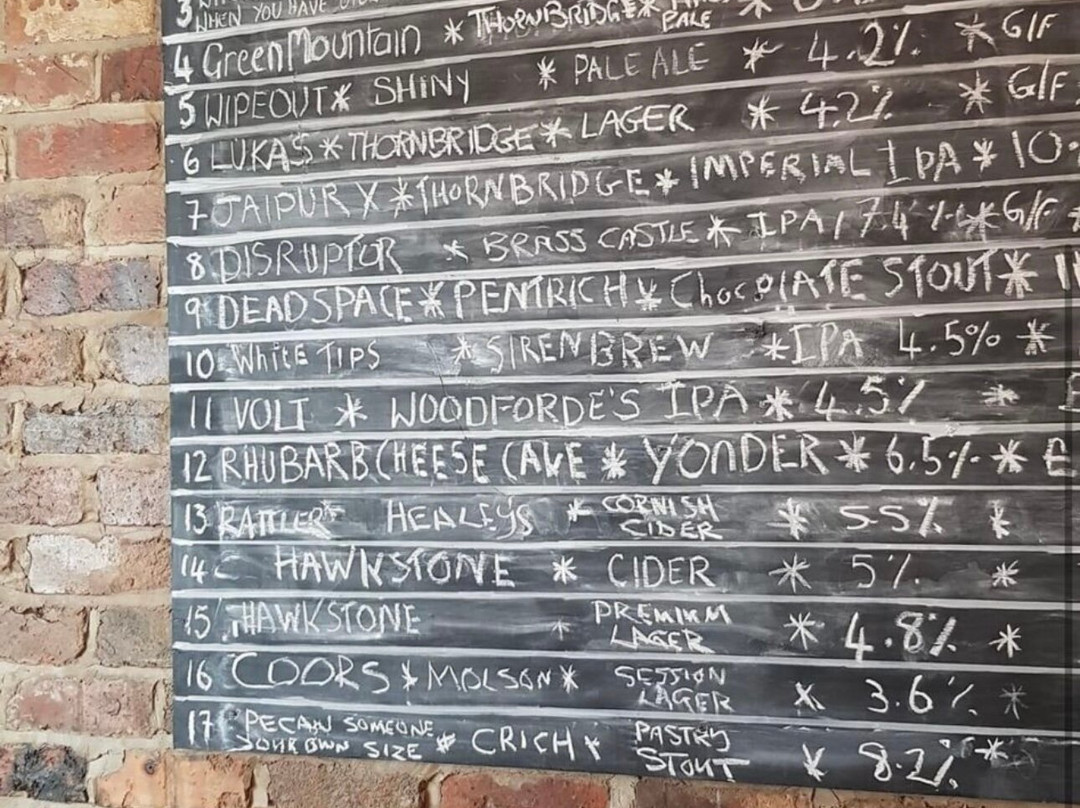 3
WHEN YOU HAVE
4 GreenMountain * THORNBRIDGE * PALE * 4.2% * G/F
5 WIPEOUT * SHINY * PALE ALE * 4.2% * G/F
6 LUKAS * THORNBRIDGE * LAGER
7 JAIPUR X * THORNBRIDGE * IMPERIAL IPA * 10.
8 DISRUPTOR * BRASS CASTLE * IPA / 7.4% * G/F *
9 DEADSPACE * PENTRICH * ChocolATE STOUT * 1
10 WhiTE TIPS * SIREN BREW * IPA 4.5% *
11 VOLT * WOODFORDE'S IPA * 4.5% *
12 RHUBARB CHEESE CAVE * YONDER * 6.5% *
13 RATTLER * HEALEYS * CORNISH CIDER * 5.5% *
14 HAWNSTONE * CIDER * 5% *
15 HAWKSTONE * PREMIUM LAGER * 4.8% *
16 COORS * MOLSON * SESSION LAGER * 3.6% *
17 PECAN SOMEONE YOUR OWN SIZE * CRICH * PASTRY STOUT * 8.2% *